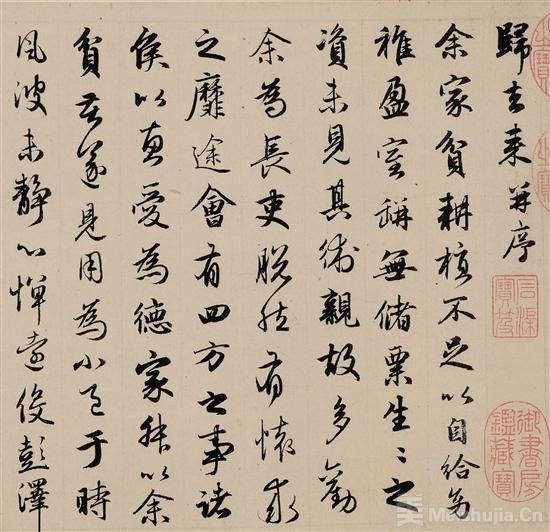 歸去来并序
余家貧耕植不足以自給幼
稚盈室缾無儲粟生〻之
資未見其術親故多勸
余為長吏脫然有懷求
之靡途會有四方之事諸
侯以惠愛為德家叔以余
貧苦遂見用為小邑于時
風波未静心憚遠役彭澤
石渠寶笈
御書房鑑藏寶
MeiShuJia.Cn